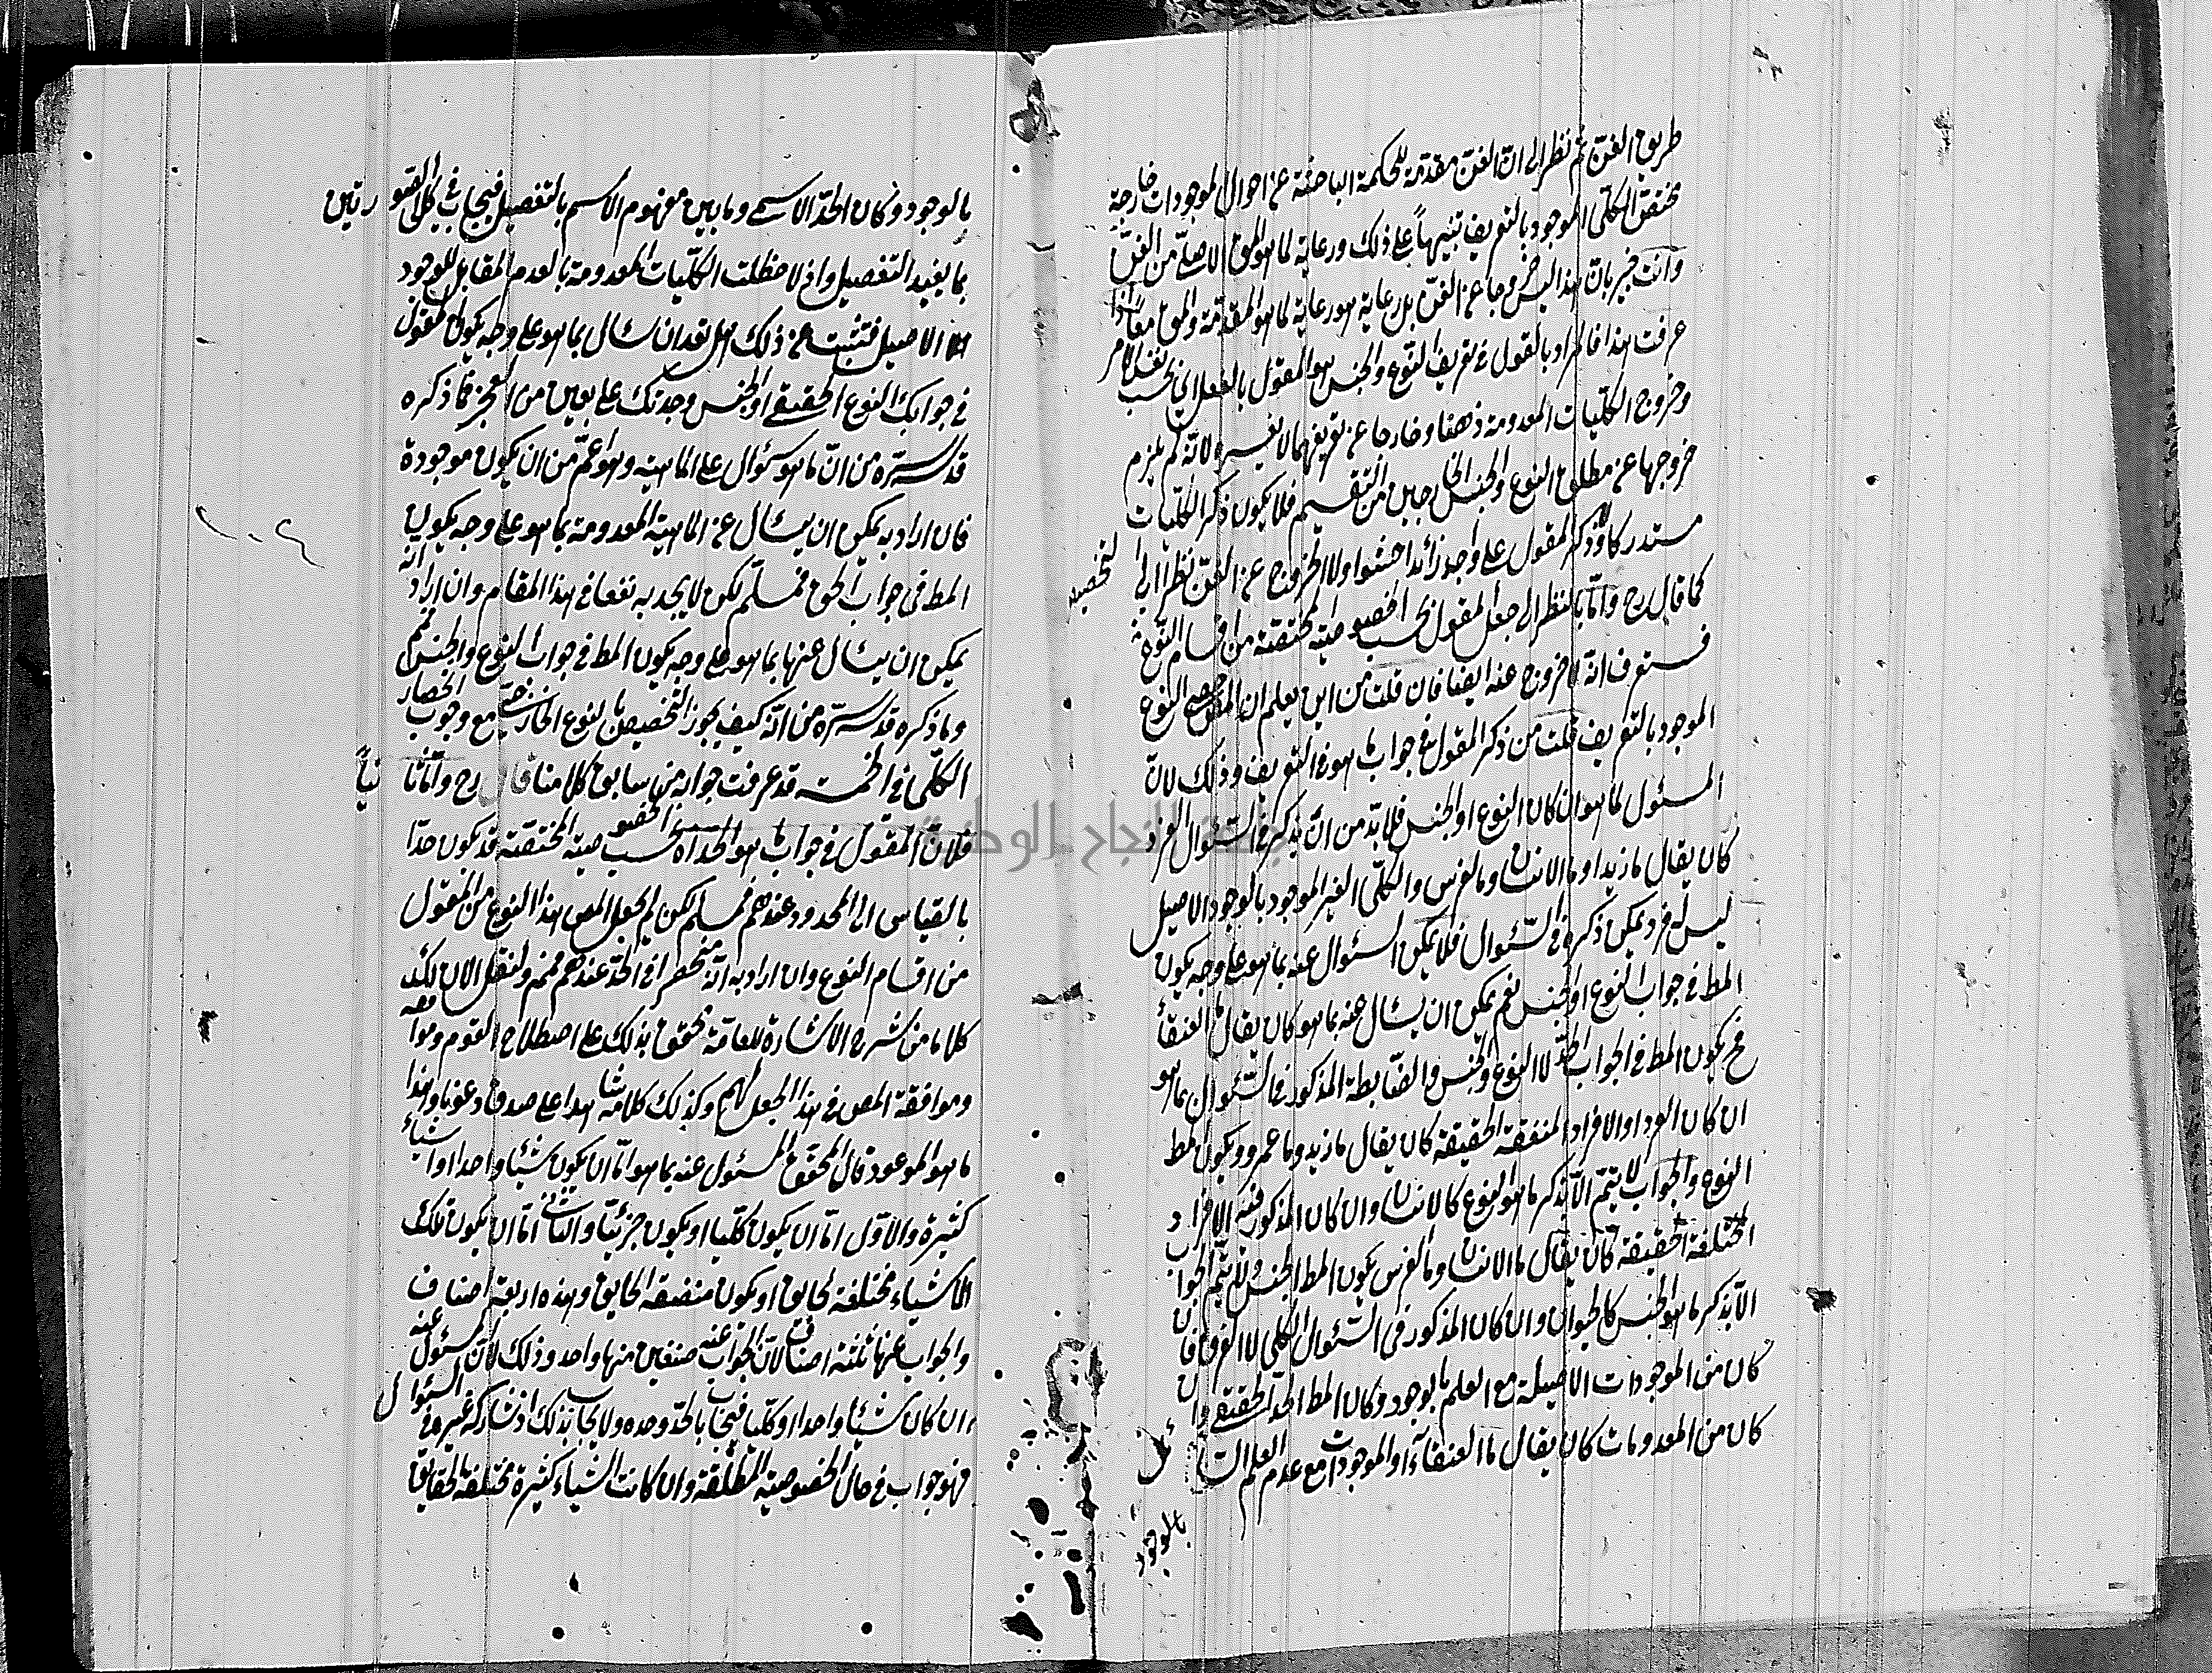 طريق الفن ثم نظرا الى ان الفن مقدمة للحكمة الباحثة عن احوال الموجودات خارجة
تحقق الكلي الموجود بالتعريف تنبيهاً على ذلك ورعاية لما هو المق الاصلي من الفن
وانت خبير بان هذا ليس خروجا عن الفن بل رعاية هو رعاية لما هو المقدمة والمق معاً اذا
عرفت هذا فالمراد بالمقول في تعريف النوع والجنس هو المقول بالفعل اي بحسب نفس الامر
وخروج الكليات المعدومة ذهنا وخارجا عن تعريفهما لا يضره لانه لم يلزم
خروجها عن مطلق النوع والجنس الخارجين من التقسيم فلا يكون ذكر الكليات
مستدركا وذكر المقول على واحد زائدا حشوا ولا الخروج عن الفن نظرا الى
كما قال رح واما بالنظر الى جعل المقول بحسب الخصوصية المحققة من اقسام النوع
فستعرف انه لا خروج عنه ايضا فان قلت من اين يعلم ان المق النوع
الموجود بالتعريف قلت من ذكر المقول في جواب ما هو في التعريف وذلك لان
المسئول لما هو ان كان النوع او الجنس فلا بد من ان يذكر في السئوال افراد
كان يقال ما زيد او ما الانسان وما الفرس والكلي الغير الموجود بالوجود الاصيل
ليس له فرد يمكن ذكره في السئوال فلا يمكن السئوال عنه بما هو على وجه يكون
المط في جواب النوع او الجنس نعم يمكن ان يسئال عنه بما هو كان يقال ما العنقأ
فح يكون المط في الجواب الحد لا النوع والجنس والضابطة المذكور في السئوال بما هو
ان كان الفرد او الافراد المتفقة الحقيقة كان يقال ما زيد وما عمرو ويكون المط
النوع والجواب لا يتم الا بذكر ما هو النوع كالانسان وان كان المذكور فيه الافراد
المختلفة الحقيقة كان يقال ما الانسان وما الفرس يكون المط الجنس ولا يتم الجواب
الا بذكر ما هو الجنس كالحيوان وان كان المذكور في السئوال الكلي لا الفرق فان
كان من الموجودات الاصيلة مع العلم بالوجود وكان المط الحد الحقيقي وان
كان من المعدومات كان يقال ما العنقاء او الموجودات مع عدم العلم
بالوجود
بالوجود وكان الحد الاسمي وما يبين مفهوم الاسم بالتفصيل فيجاب في كلي الصورتين
بما يفيد التفصيل واذ لاحظت الكليات المعدومة بالعدم المقابل للوجود
الاصيل فتثبت عن ذلك هل تقدر ان تسئال بما هو على وجه يكون المقول
في جوابك النوع الحقيقي او الجنس وجدتك على يقين من العجز فما ذكره
قدس سره من ان ما هو سئوال على الماهية وهو اعم من ان يكون موجودة
فان اراد به يمكن ان يسئال عن الماهية المعدومة بما هو على وجه يكون
المط في جواب الحق فمسلم لكن لا يجد به نفعا في هذا المقام وان اراد انه
يمكن ان يسئال عنها بما هو على وجه يكون المط في جواب النوع والجنس فم
وما ذكره قدس سره من انه كيف يجوز التخصيص بالنوع الخارجي مع وجوب انحصار
الكلي في الخمسة قد عرفت جوابه من سابق كلامنا قال رح واما ثانياً
فلان المقول في جواب ما هو الحد اه بحسب الخصوصية المحققة قد يكون حدا
بالقياس الى المحدود عندهم فمسلم لكن لم يجعل المص هذا النوع من المقول
من اقسام النوع وان اراد به انه منحصر في الحد عندهم فمم ولننقل الان لك
كلاما من شرح الاشارة للعلامة تحقق بذلك على اصطلاح القوم وموافقة
وموافقة المص في هذا الجعل لهم وكذلك كلامه شاهدا على صدق دعونا وهذا
ما هو الموعود قال المحقق المسئول عنه بما هو اما ان يكون شيئا واحدا او اشياء
كثيرة والاول اما ان يكون كليا او يكون جزئيا والثاني اما ان يكون تلك
الاشياء مختلفة الحقايق او يكون متفقة الحقايق وهذه اربعة اصناف
والجواب عنها ثلثة اصناف لان الجواب عن صنفين منها واحد وذلك لان المسئول عنه
ان كان شيئا واحدا وكليا فيجاب بالحد وحده ولا يجاب بذلك اذ تشاركه غيره في السئوال
فهو جواب في حال الخصوصية المطلقة وان كانت اشياء كثيرة مختلفة الحقايق
جامعة النجاح الوطنية